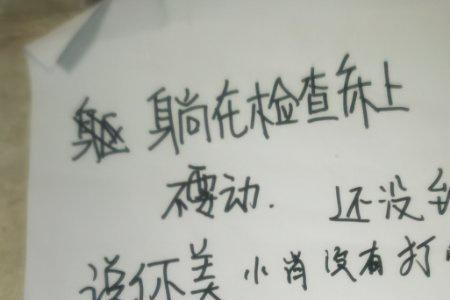 躺在检查床上
不要动. 还没
说你美 小肖没有打